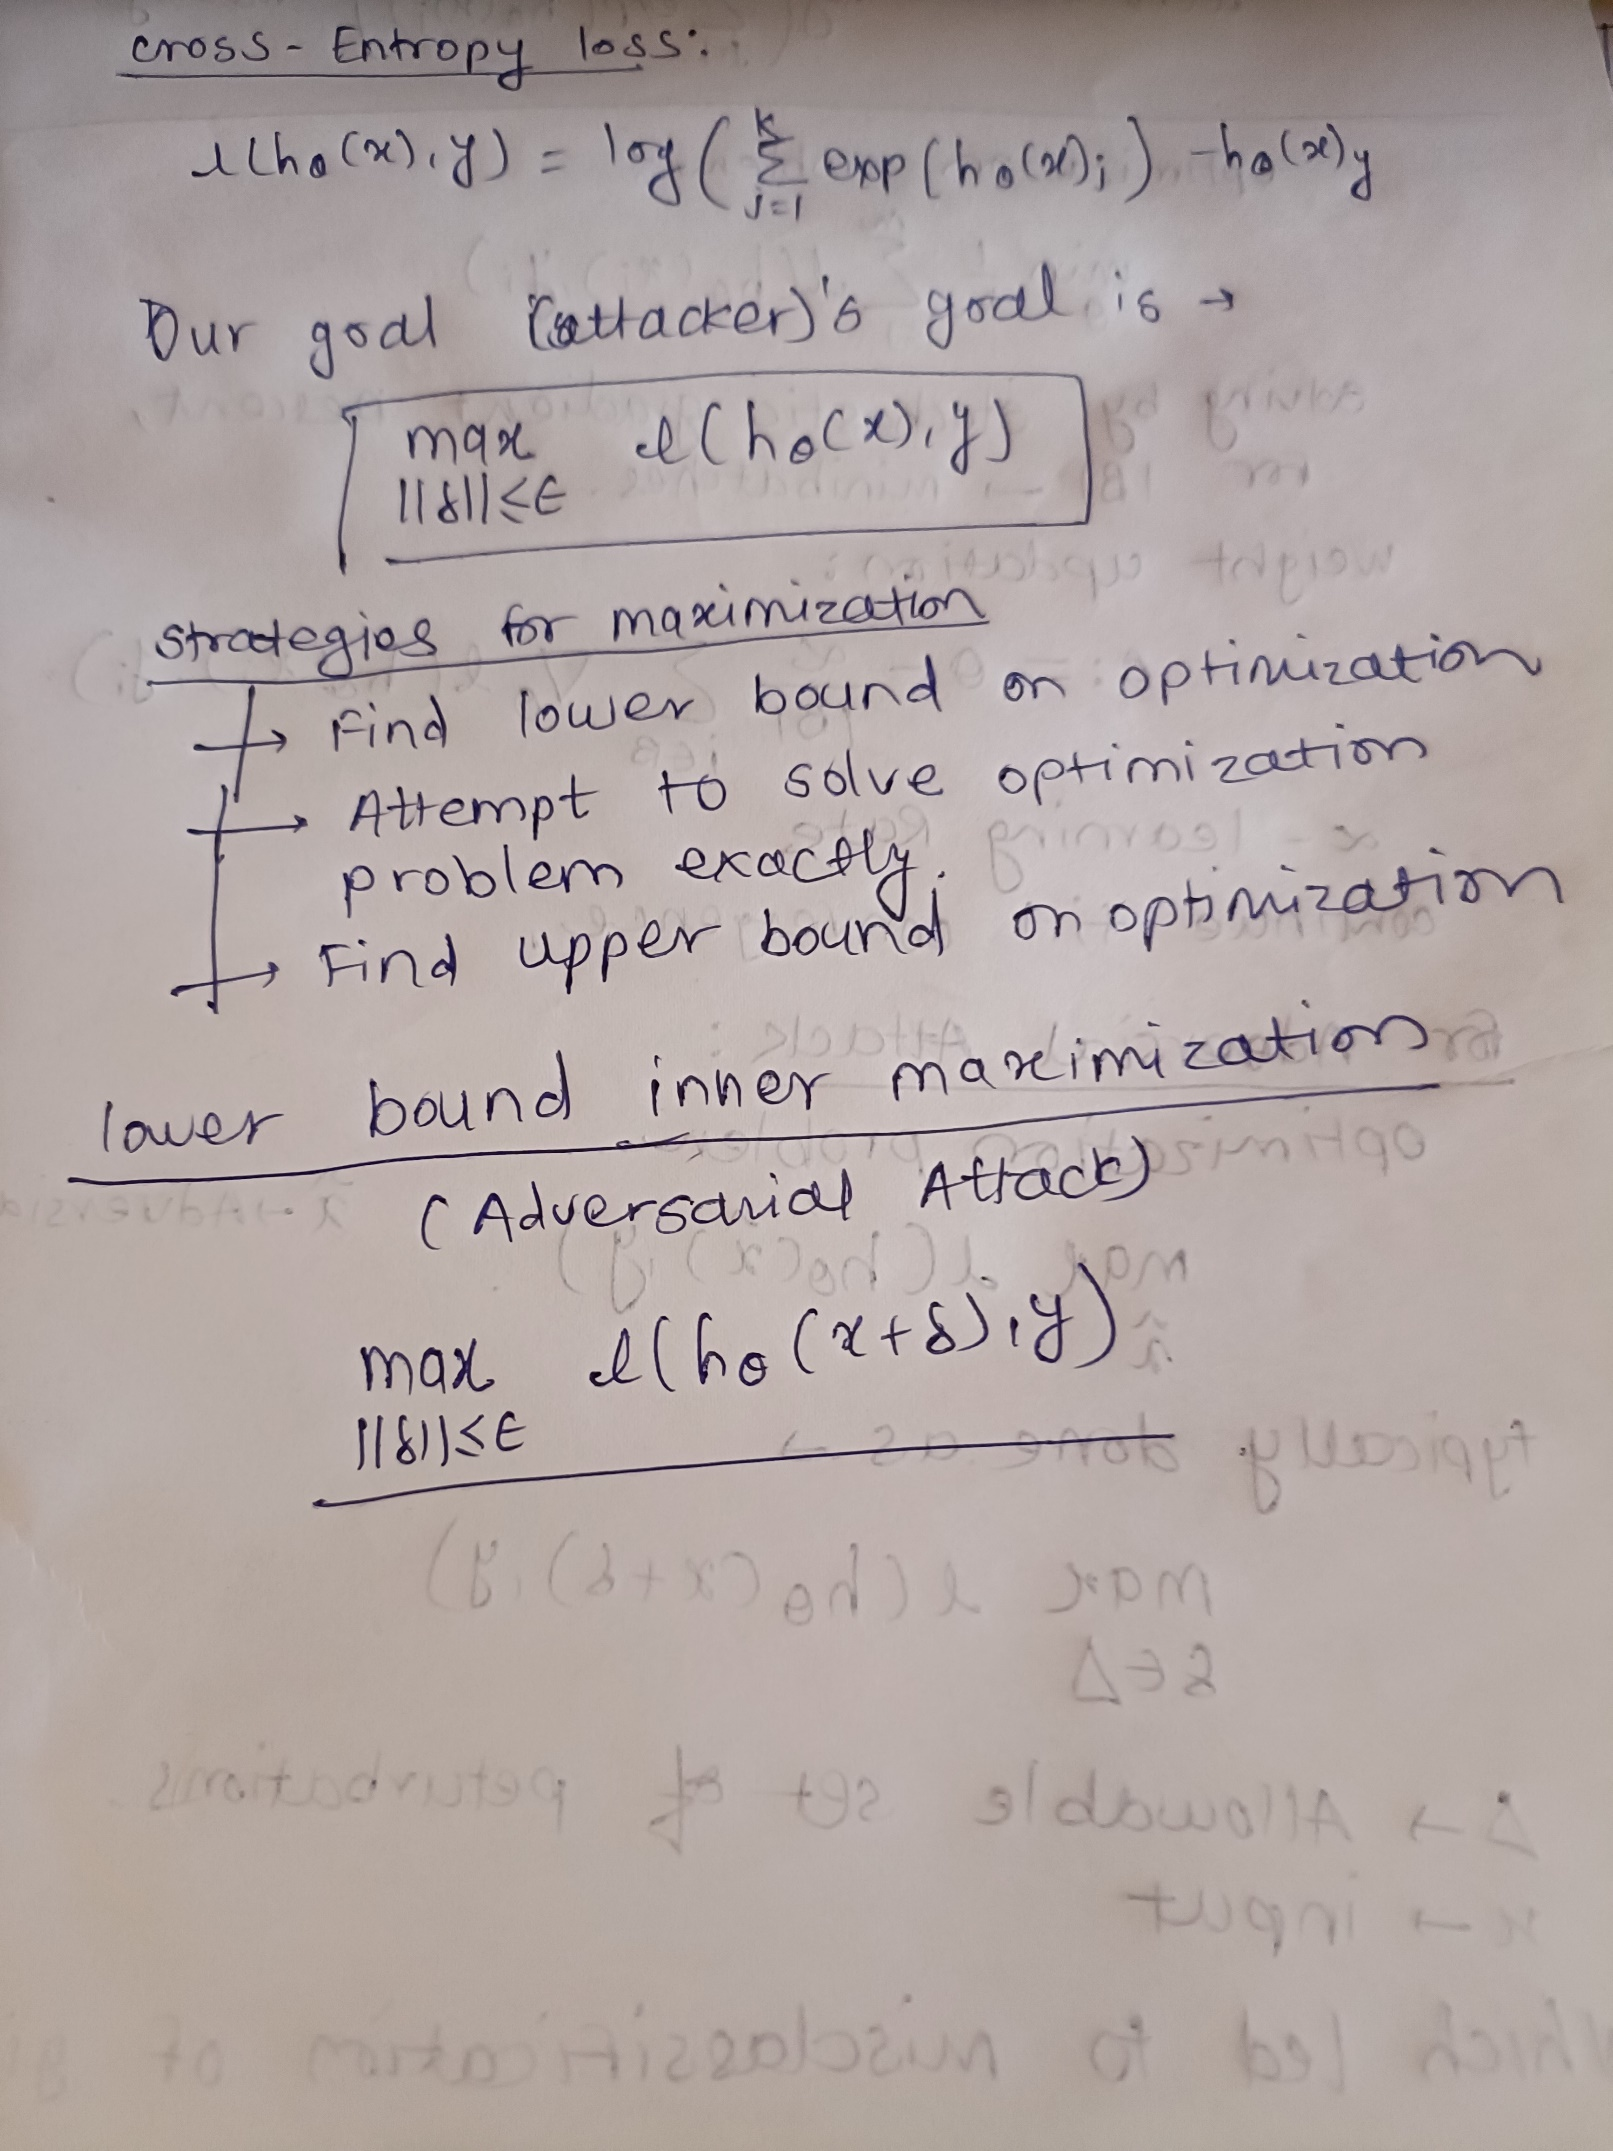 cross-Entropy loss:
l(hθ(x),y) = log(∑ᵏⱼ₌₁ exp(hθ(x)j) -hθ(x)y
Our goal (attacker)'s goal is →
max l(hθ(x),y)
||δ||≤∈
strategies for maximization
→ Find lower bound on optimization
→ Attempt to solve optimization
problem exactly.
→ Find upper bound on optimization
lower bound inner maximization
(Adversarial Attack)
max l(hθ(x+δ),y)
||δ||≤∈